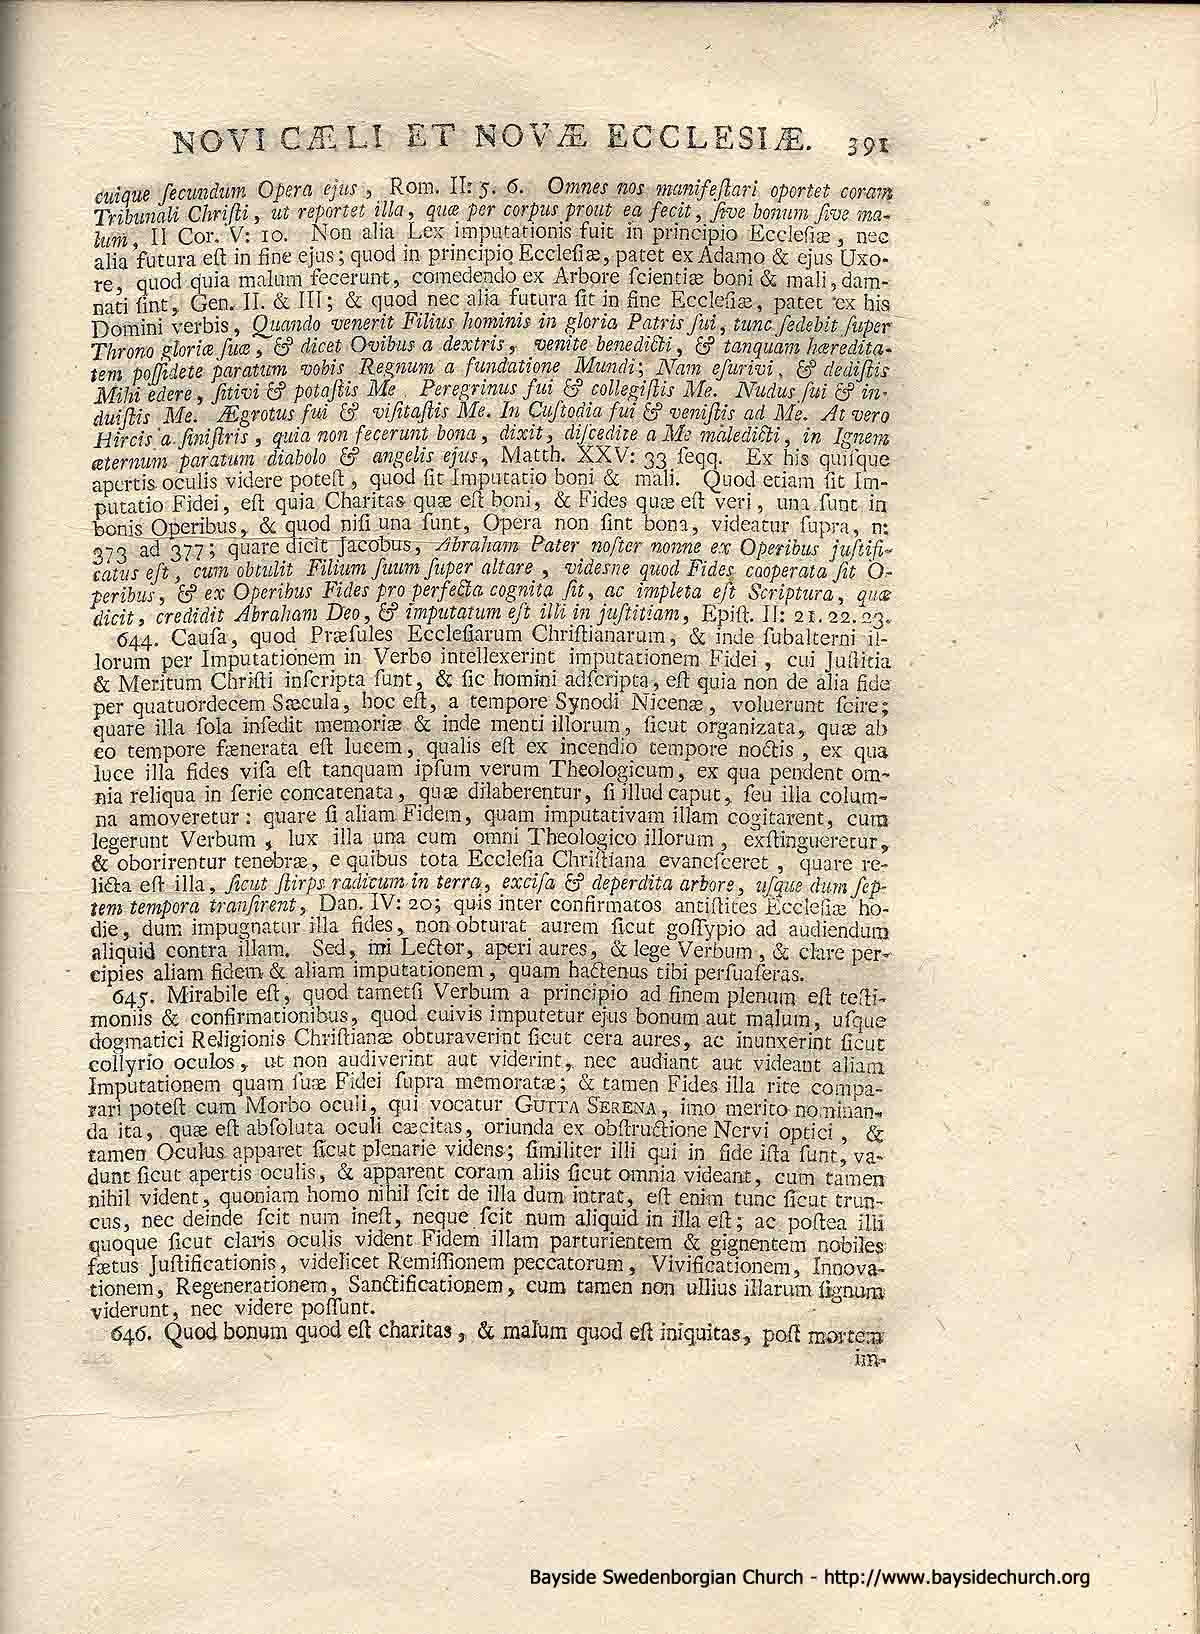 NOVI CÆLI ET NOVÆ ECCLESIÆ. 391
cuique ſecundum Opera ejus, Rom. II: 5. 6. Omnes nos manifeſtari oportet coram
Tribunali Chriſti, ut reportet illa, quæ per corpus prout ea fecit, ſive bonum ſive ma-
lum, II Cor. V: 10. Non alia Lex imputationis fuit in principio Eccleſiæ, nec
alia futura eſt in fine ejus; quod in principio Eccleſiæ, patet ex Adamo & ejus Uxo-
re, quod quia malum fecerunt, comedendo ex Arbore ſcientiæ boni & mali, dam-
nati ſint, Gen. II. & III; & quod nec alia futura ſit in fine Eccleſiæ, patet ex his
Domini verbis, Quando venerit Filius hominis in gloria Patris ſui, tunc ſedebit ſuper
Throno gloriæ ſuæ, & dicet Ovibus a dextris, venite benedicti, & tanquam hæredita-
tem poſſidete paratum vobis Regnum a fundatione Mundi; Nam eſurivi, & dediſtis
Mihi edere, ſitivi & potaſtis Me Peregrinus fui & collegiſtis Me. Nudus fui & in-
duiſtis Me. Ægrotus fui & viſitaſtis Me. In Cuſtodia fui & veniſtis ad Me. At vero
Hircis a ſiniſtris, quia non fecerunt bona, dixit, diſcedite a Me maledicti, in Ignem
æternum paratum diabolo & angelis ejus, Matth. XXV: 33 ſeqq. Ex his quiſque
apertis oculis videre poteſt, quod ſit Imputatio boni & mali. Quod etiam ſit Im-
putatio Fidei, eſt quia Charitas quæ eſt boni, & Fides quæ eſt veri, una ſunt in
bonis Operibus, & quod niſi una ſunt, Opera non ſint bona, videatur ſupra, n:
373 ad 377; quare dicit Jacobus, Abraham Pater noſter nonne ex Operibus juſtifi-
catus eſt, cum obtulit Filium ſuum ſuper altare, videsne quod Fides cooperata ſit O-
peribus, & ex Operibus Fides pro perfecta cognita ſit, ac impleta eſt Scriptura, quæ
dicit, credidit Abraham Deo, & imputatum eſt illi in juſtitiam, Epiſt. II: 21. 22. 23.
644. Cauſa, quod Præſules Eccleſiarum Chriſtianarum, & inde ſubalterni il-
lorum per Imputationem in Verbo intellexerint imputationem Fidei, cui Juſtitia
& Meritum Chriſti inſcripta ſunt, & ſic homini adſcripta, eſt quia non de alia fide
per quatuordecem Sæcula, hoc eſt, a tempore Synodi Nicenæ, voluerunt ſcire;
quare illa ſola inſedit memoriæ & inde menti illorum, ſicut organizata, quæ ab
eo tempore fænerata eſt lucem, qualis eſt ex incendio tempore noctis, ex qua
luce illa fides viſa eſt tanquam ipſum verum Theologicum, ex qua pendent om-
nia reliqua in ſerie concatenata, quæ dilaberentur, ſi illud caput, ſeu illa colum-
na amoveretur: quare ſi aliam Fidem, quam imputativam illam cogitarent, cum
legerunt Verbum, lux illa una cum omni Theologico illorum, exſtingueretur,
& oborirentur tenebræ, e quibus tota Eccleſia Chriſtiana evaneſceret, quare re-
licta eſt illa, ſicut ſtirps radicum in terra, exciſa & deperdita arbore, uſque dum ſep-
tem tempora tranſirent, Dan. IV: 20; quis inter confirmatos antiſtites Eccleſiæ ho-
die, dum impugnatur illa fides, non obturat aurem ſicut goſſypio ad audiendum
aliquid contra illam. Sed, mi Lector, aperi aures, & lege Verbum, & clare per-
cipies aliam fidem & aliam imputationem, quam hactenus tibi perſuaſeras.
645. Mirabile eſt, quod tametſi Verbum a principio ad finem plenum eſt teſti-
moniis & confirmationibus, quod cuivis imputetur ejus bonum aut malum, uſque
dogmatici Religionis Chriſtianæ obturaverint ſicut cera aures, ac inunxerint ſicut
collyrio oculos, ut non audiverint aut viderint, nec audiant aut videant aliam
Imputationem quam ſuæ Fidei ſupra memoratæ; & tamen Fides illa rite compa-
rari poteſt cum Morbo oculi, qui vocatur GUTTA SERENA, imo merito nominan-
da ita, quæ eſt abſoluta oculi cæcitas, oriunda ex obſtructione Nervi optici, &
tamen Oculus apparet ſicut plenarie videns; ſimiliter illi qui in fide iſta ſunt, va-
dunt ſicut apertis oculis, & apparent coram aliis ſicut omnia videant, cum tamen
nihil vident, quoniam homo nihil ſcit de illa dum intrat, eſt enim tunc ſicut trun-
cus, nec deinde ſcit num ineſt, neque ſcit num aliquid in illa eſt; ac poſtea illi
quoque ſicut claris oculis vident Fidem illam parturientem & gignentem nobiles
fætus Juſtificationis, videlicet Remiſſionem peccatorum, Vivificationem, Innova-
tionem, Regenerationem, Sanctificationem, cum tamen non ullius illarum ſignum
viderunt, nec videre poſſunt.
646. Quod bonum quod eſt charitas, & malum quod eſt iniquitas, poſt mortem
im-
Bayside Swedenborgian Church - http://www.baysidechurch.org